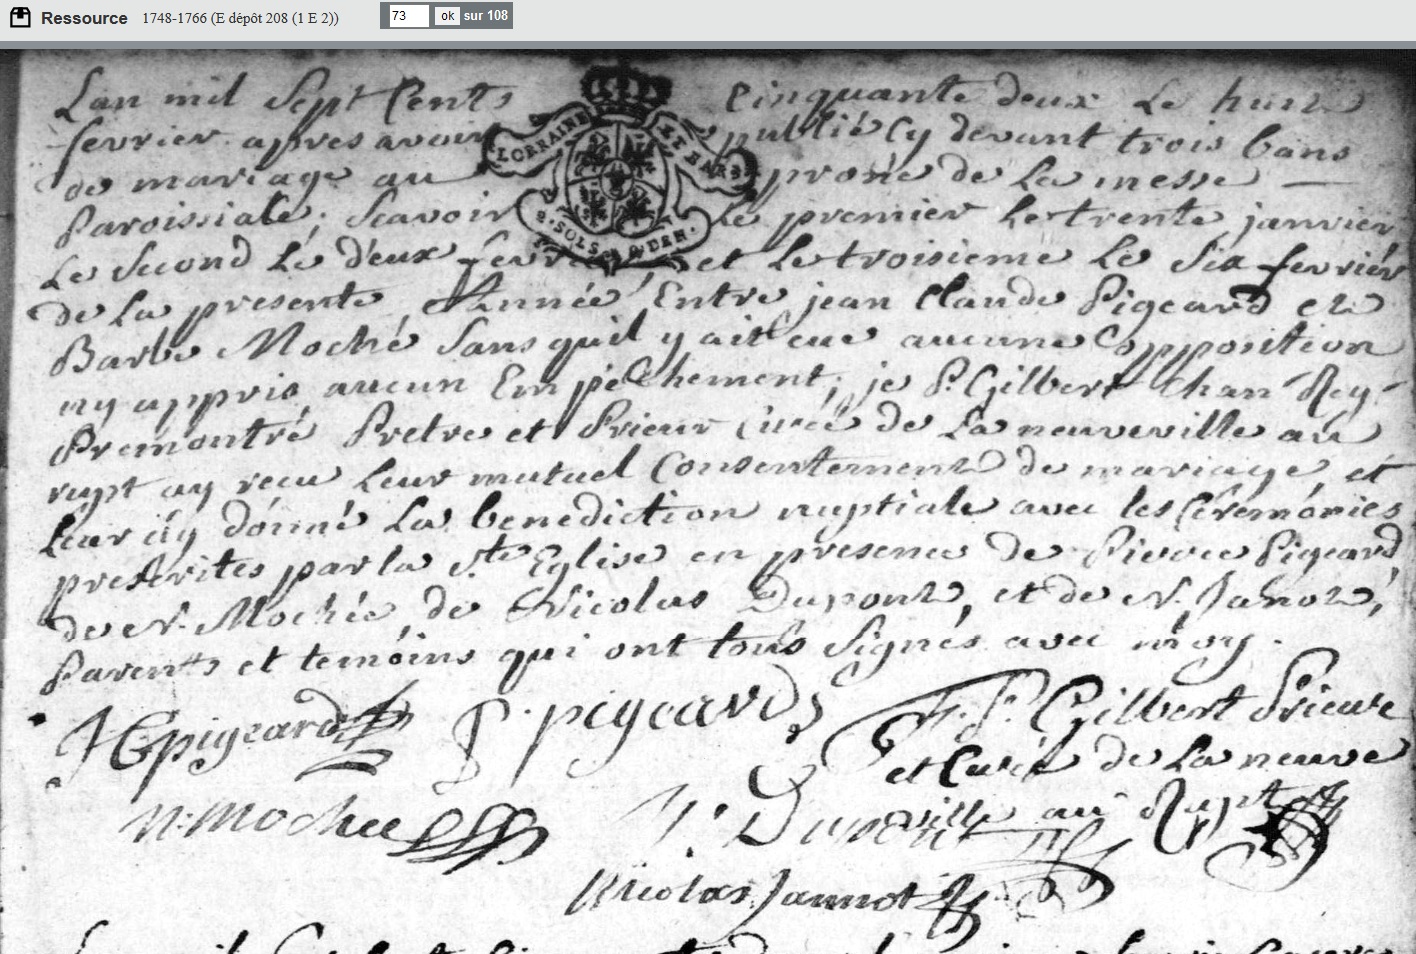 Ressource 1748-1766 (E dépôt 208 (1 E 2)) 73 ok sur 108
Lan mil Sept Cents Cinquante deux Le huit
fevrier apres avoir publié Cy devant trois bans
de mariage au prone de La messe
Paroissiale, Scavoir Le premier Le trente janvier
Le Second Le deux fevrier et Le troisieme Le Six fevriér
de La presente Année, Entre jean Claude Pigeard et
Barbe Moché Sans quil y ait eue aucune Opposition
ny appris aucun Empéchement, je P. Gilbert
Premontré Pretre et Prieur Curé de La neuveville au
rupt ay recu Leur mutuel Consentement de mariage, et
Leur ay donné La benediction nuptiale avec les Cérémonies
prescrites par la Ste Eglise en presence de Pigeard,
de N. Mochée, de Nicolas Dupont, et de N. Janot,
Parents et temoins qui ont tous Signés avec moy.
JC pigeard
P. pigeard
F. P. Gilbert Prieur
et Curé de La neuve
ville au Rupt
N. Mochee
N. Dupont
Nicolas Jannot
LORRAINE ET BAR
2. SOLS DEN.